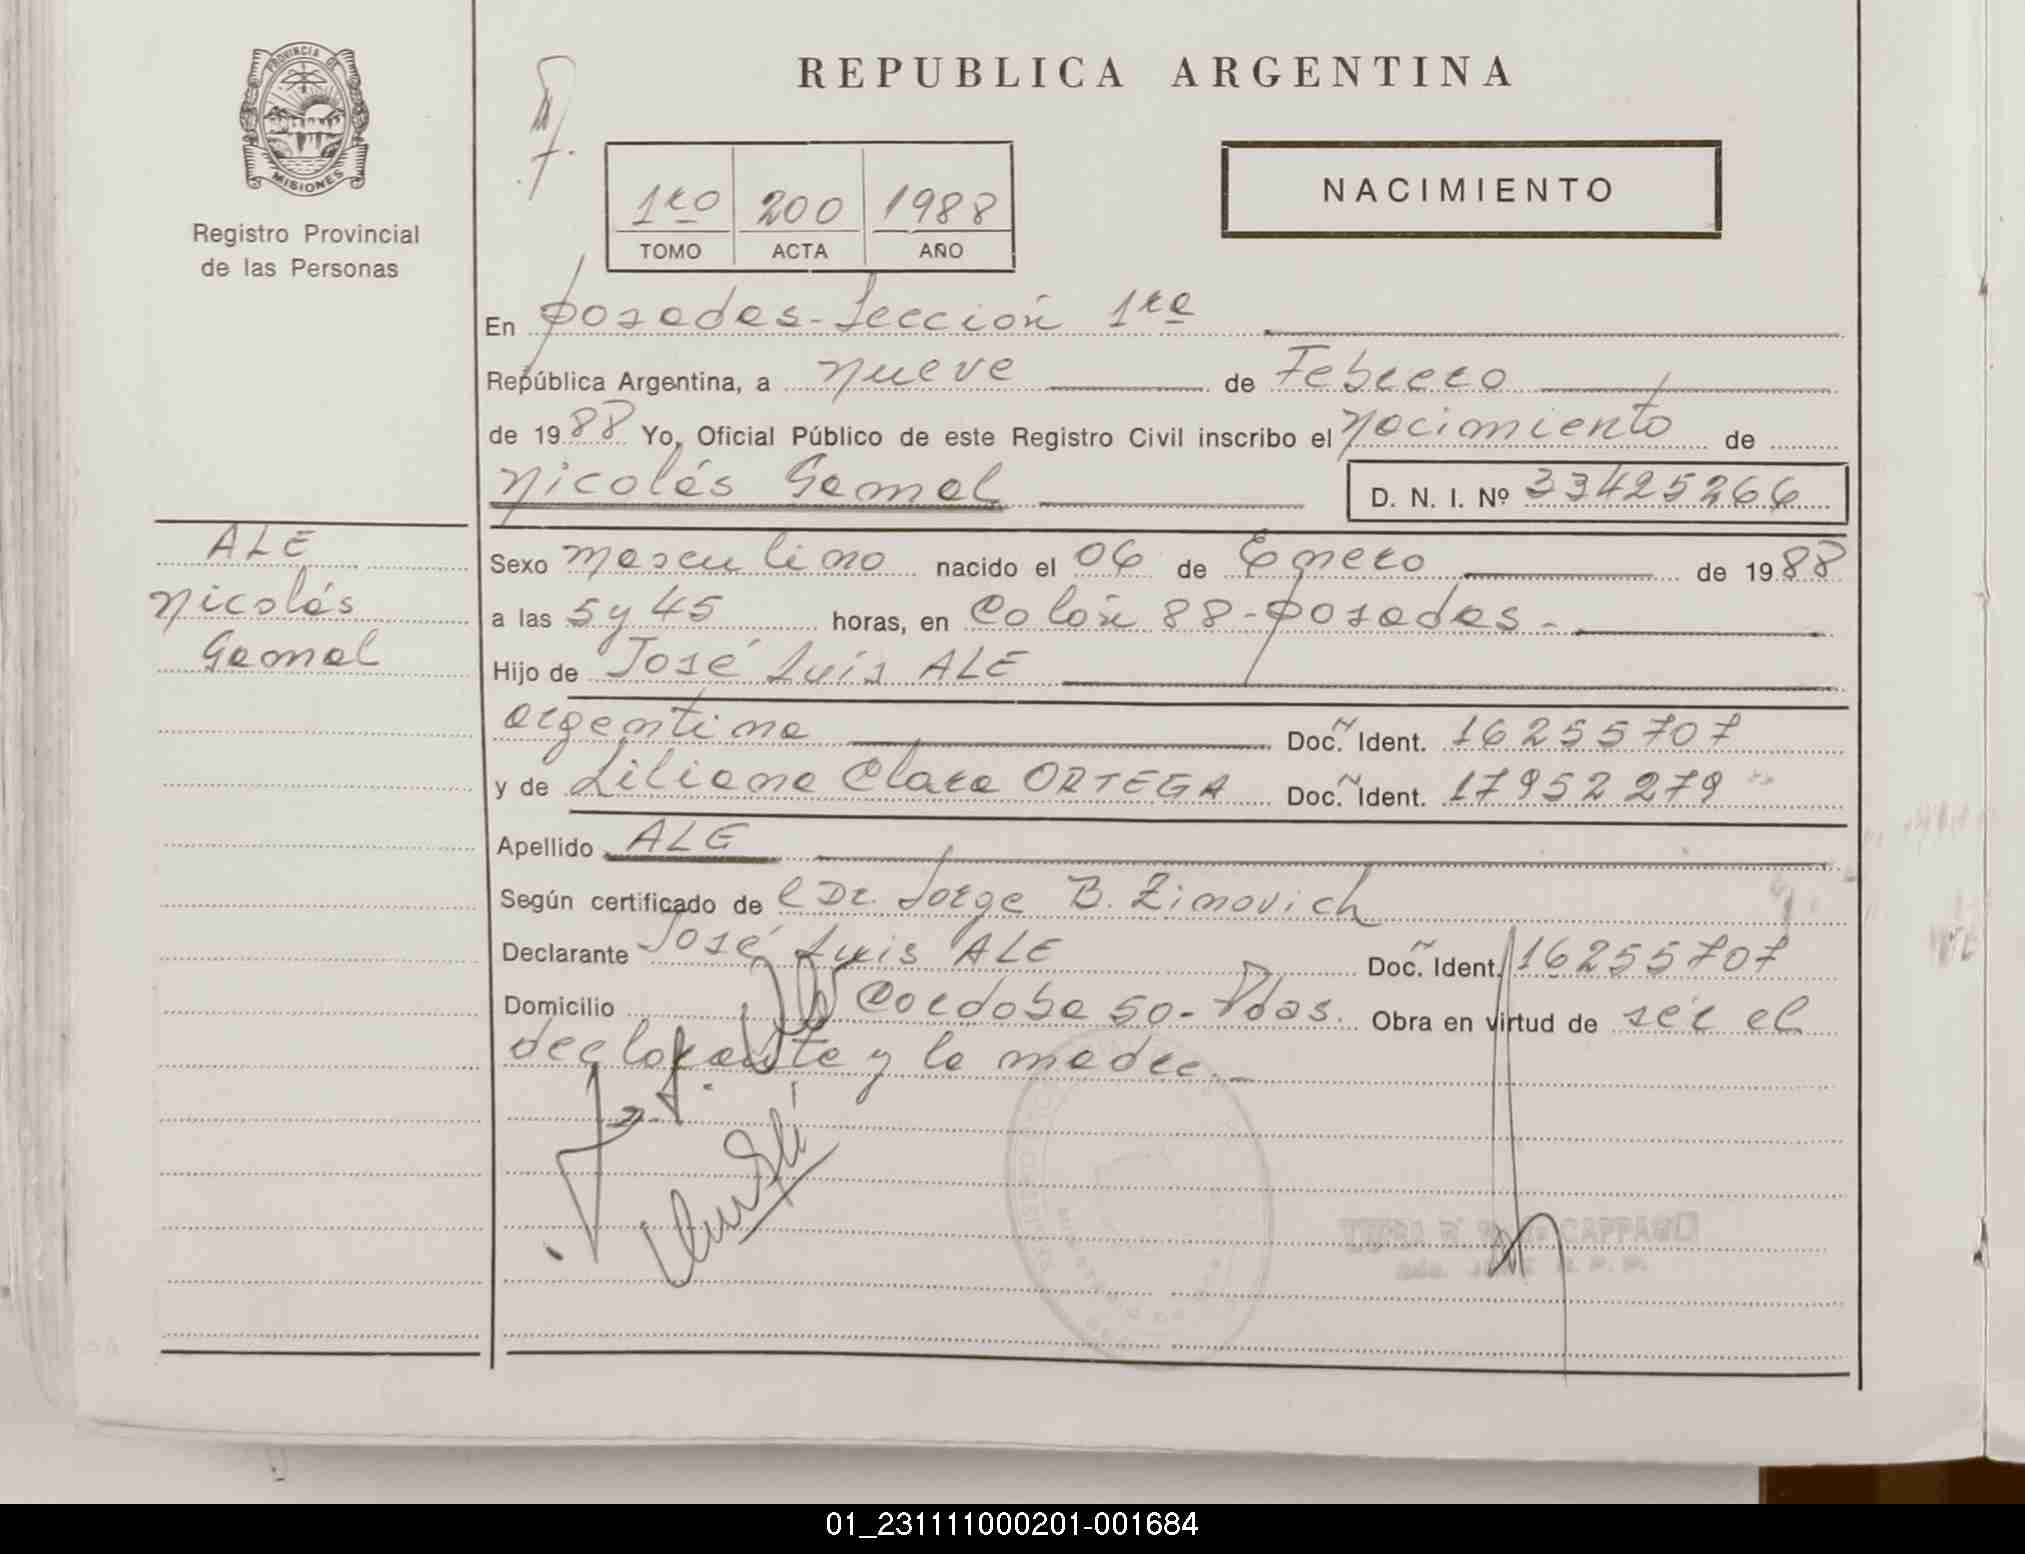 PROVINCIA DE
MISIONES
Registro Provincial
de las Personas
REPUBLICA ARGENTINA
1ro 200 1988
TOMO ACTA AÑO
NACIMIENTO
En Posadas - Sección 1ra
República Argentina, a nueve de Febrero
de 1988 Yo, Oficial Público de este Registro Civil inscribo el nacimiento de
Nicolás Gamal D. N. I. Nº 33425266
ALE
Nicolás
Gamal
Sexo masculino nacido el 06 de Enero de 1988
a las 5 y 45 horas, en Colón 88 - Posadas -
Hijo de José Luis ALE
argentina Doc. Ident. 16255707
y de Liliana Clara ORTEGA Doc. Ident. 17952279
Apellido ALE
Según certificado de el Dr. Jorge B. Zimovich
Declarante José Luis ALE Doc. Ident. 16255707
Domicilio Córdoba 50 - Pdas. Obra en virtud de ser el
declarante y la madre. -
01_231111000201-001684